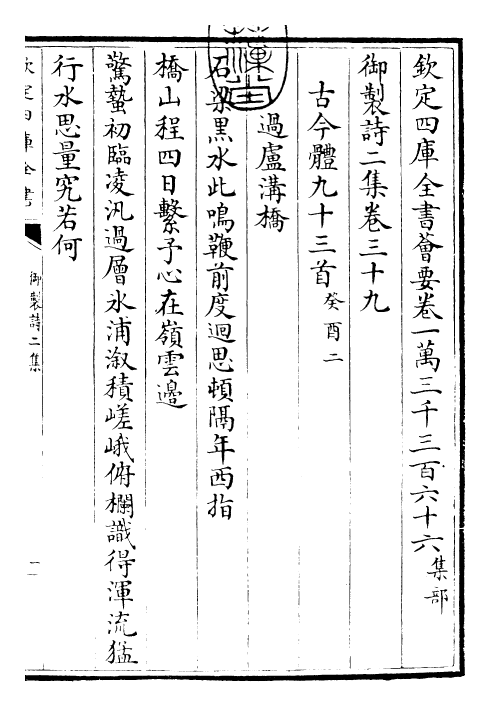 欽定四庫全書薈要卷一萬三千三百六十六 集部
御製詩二集卷三十九
古今體九十三首 癸酉二
過盧溝橋
石梁黒水此鳴鞭前度迴思頓隔年西指
橋山程四日繫予心在嶺雲邉
驚蟄初臨凌汛過層氷浦溆積嵯峨俯欄識得渾流猛
行水思量究若何
欽定四庫全書
御製詩二集
一